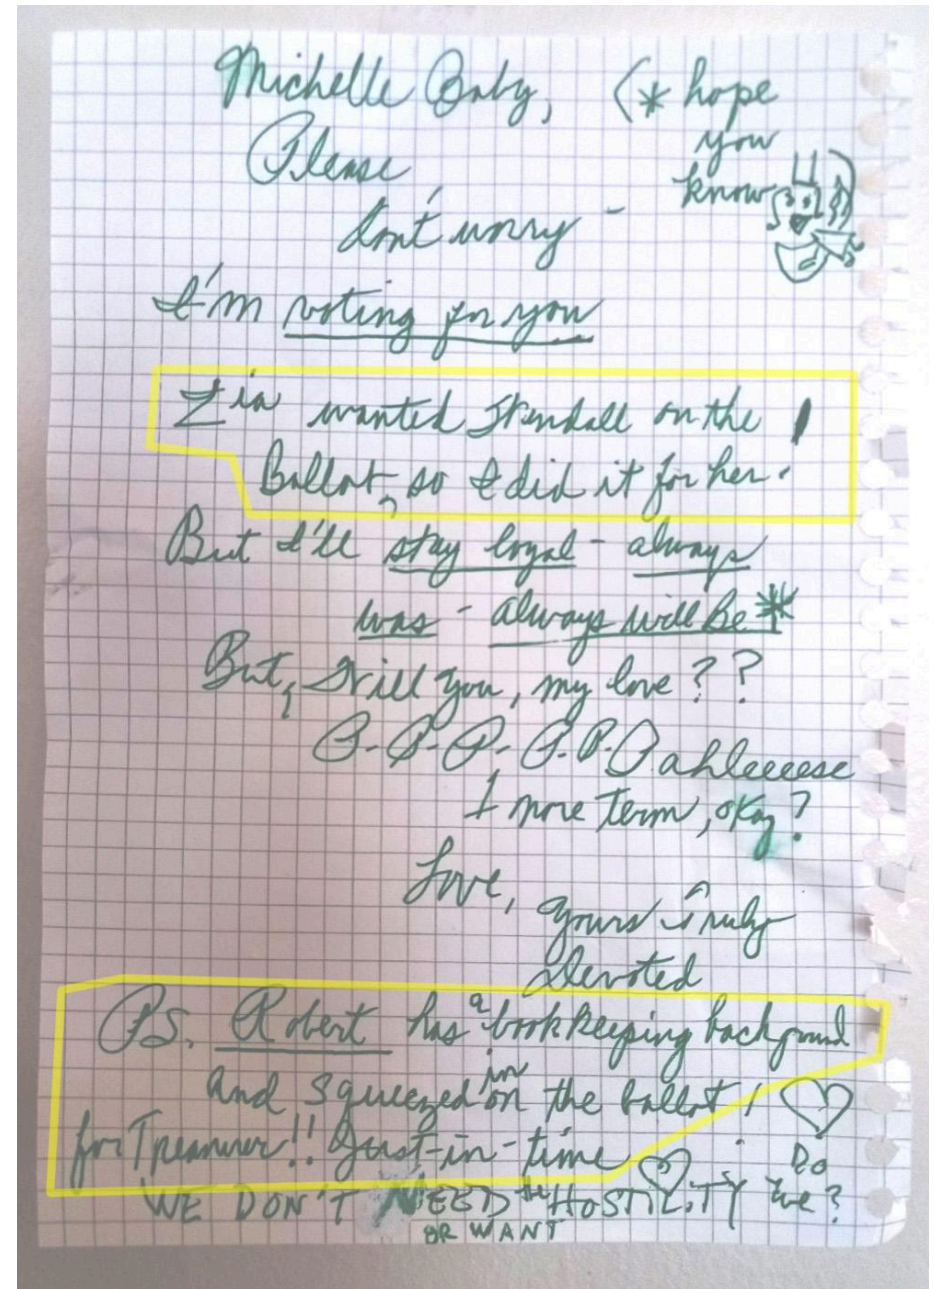 Michelle Baby, (* hope
you
know
Please
don't worry -
I'm voting for you
Zia wanted Kendall on the
Ballot, so I did it for her.
But I'll stay loyal - always
was - always will be *
But, Will you, my love??
P.-P.-P.-P.P.P ahleeeese
1 more term, okay?
Love,
Yours Truly
Devoted
P.S. Robert has a bookkeeping background
and squeezed in on the ballot!
for Treasurer!! Just-in-time
WE DON'T NEED the HOSTILITY Do we?
OR WANT